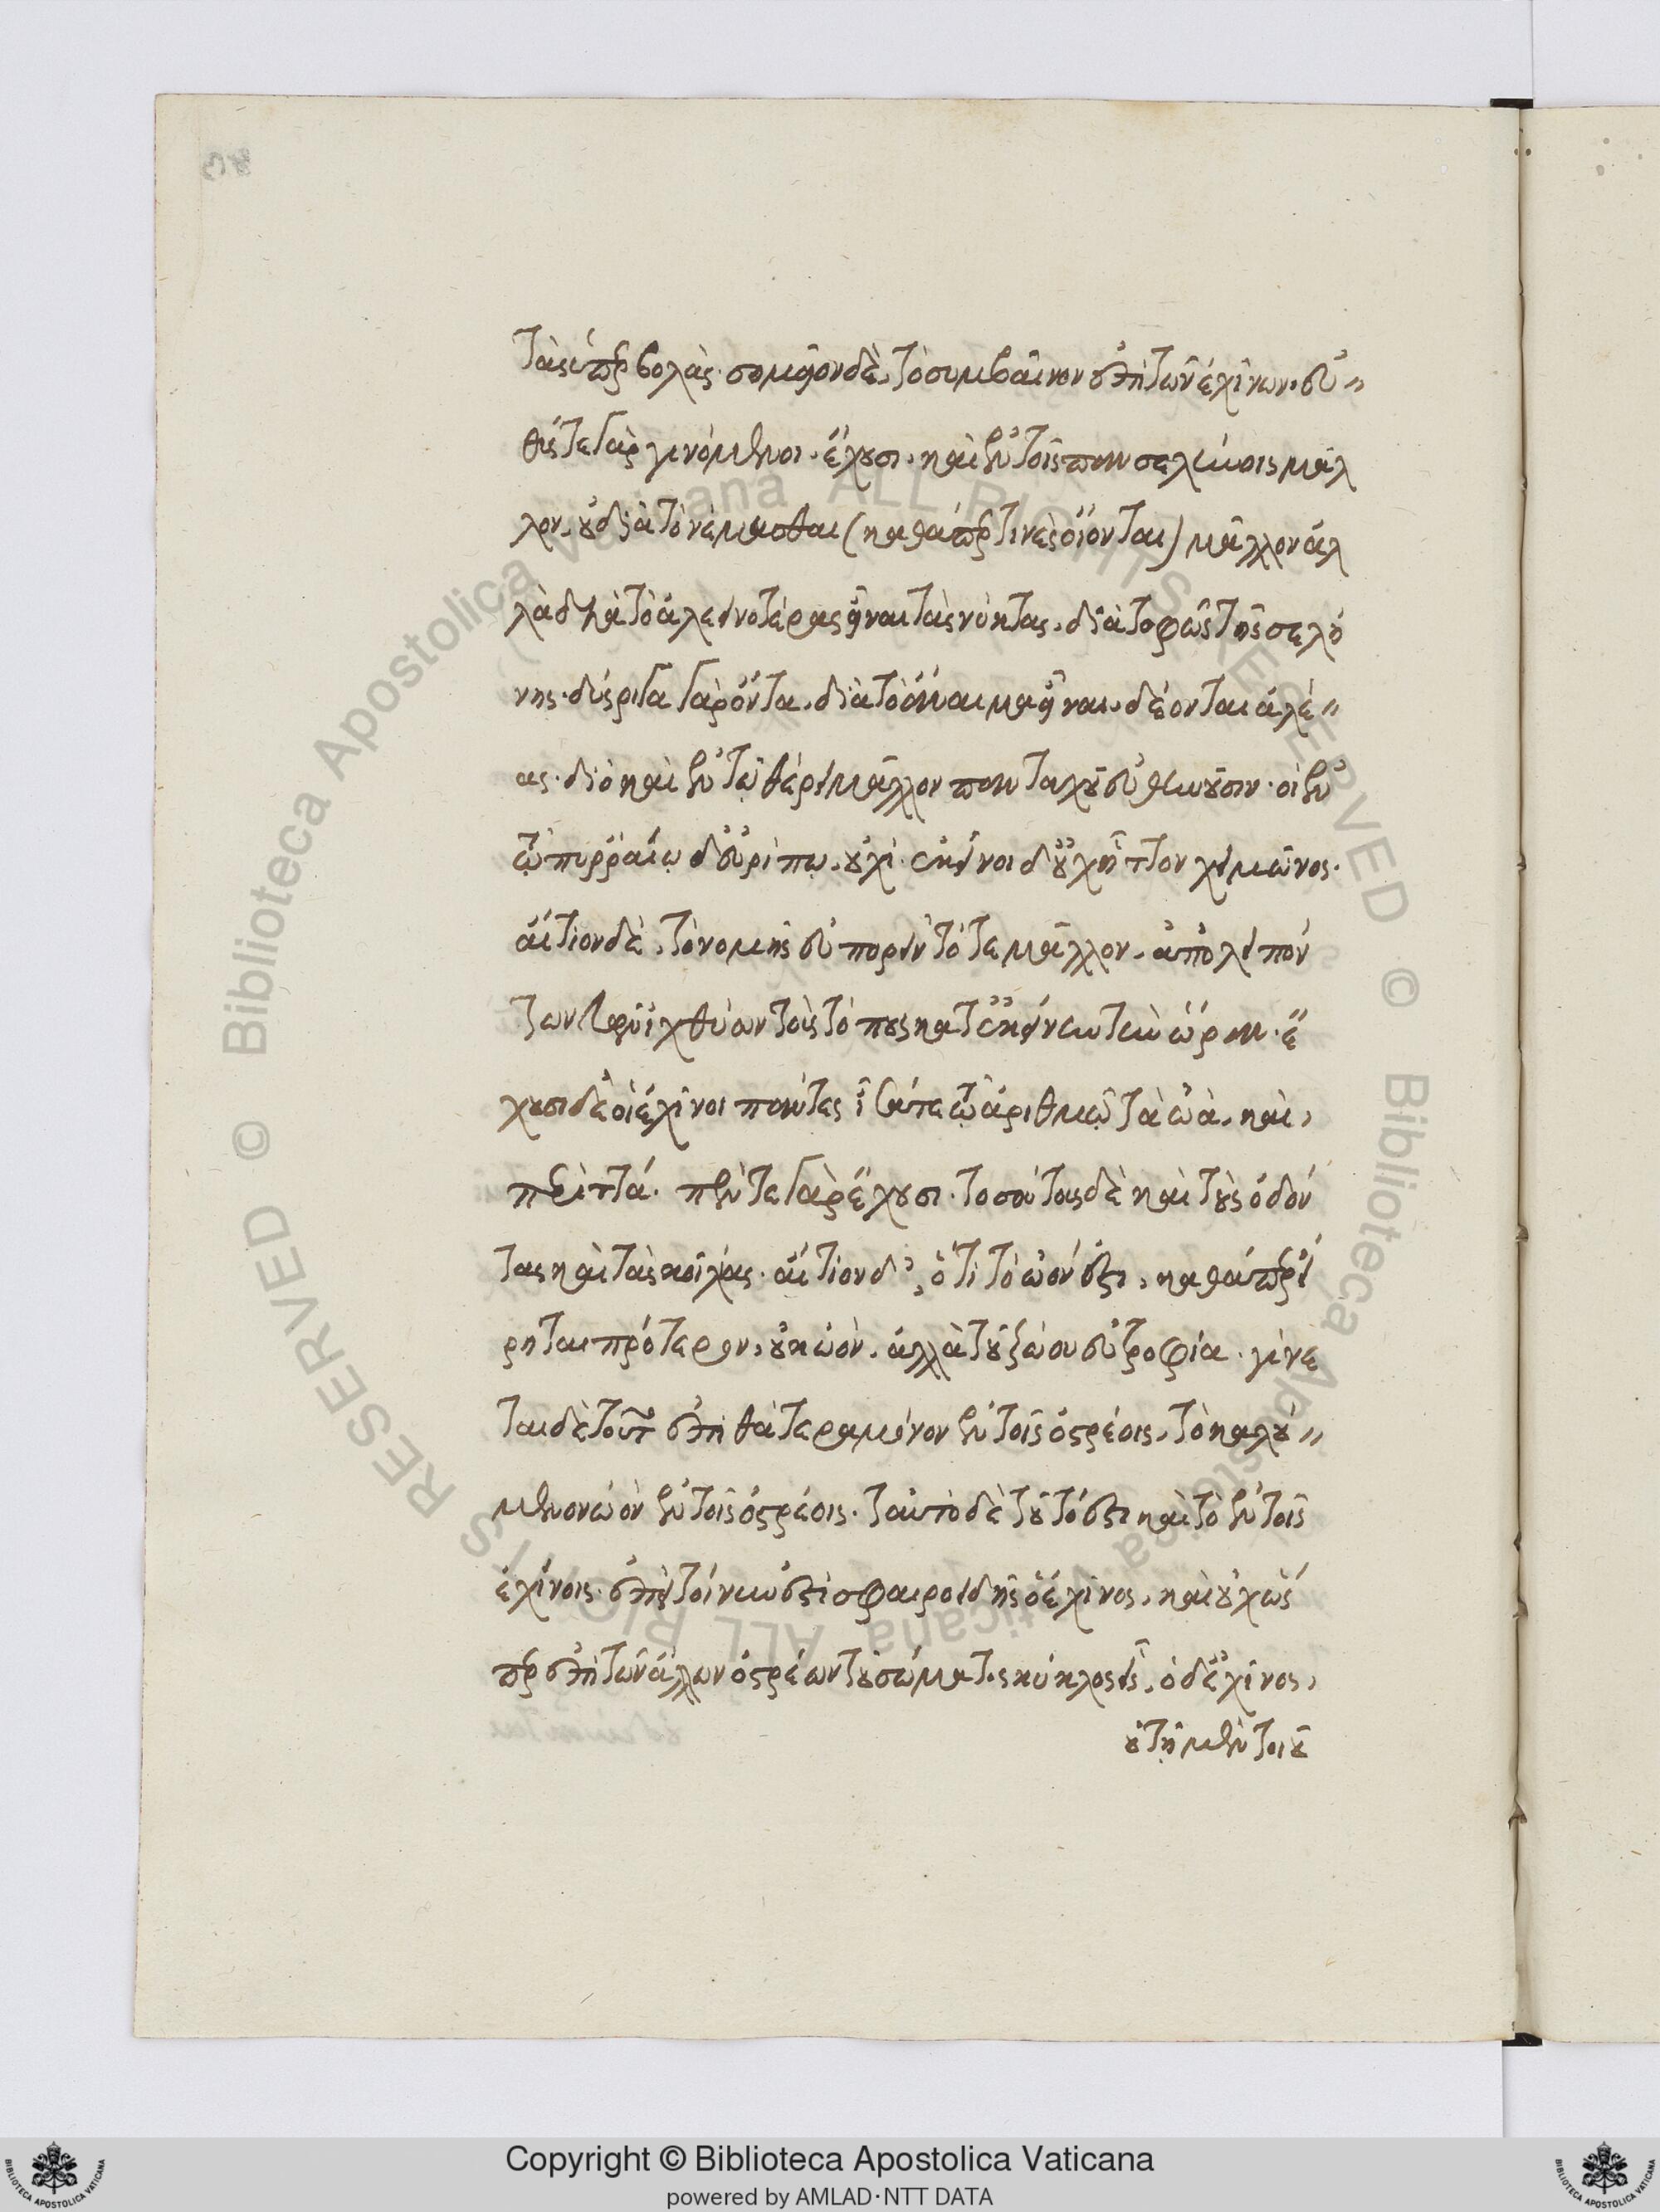 τὰς ὑπερβολὰς. σημεῖον δὲ, τὸ συμβαῖνον ἐπὶ τῶν ἐχίνων. εὐ〃
θύς τε γὰρ γινόμενοι. ἔχουσι. καὶ ἐν τοῖς πανσελήνοις μᾶλ
λον. οὐ διὰ τὸ νέμεσθαι (καθάπερ τινὲς οἴονται) μᾶλλον ἀλ
λὰ διὰ τὸ ἀλεεινοτέρας εἶναι τὰς νύκτας. διὰ τὸ φῶς τῆς σελή
νης. δύσριγα γὰρ ὄντα. διὰ τὸ ἄναιμα εἶναι. δέονται ἀλέ〃
ας. διὸ καὶ ἐν τῷ θέρει μᾶλλον πανταχοῦ εὐθηνοῦσιν. οἱ ἐν
τῷ πυρραίῳ δ' εὐρίπῳ. οὐχὶ. ἐκεῖνοι δ' οὐχ ἧττον χειμῶνος.
αἴτιον δὲ. τὸ νομῆς εὐπορεῖν τότε μᾶλλον. ἀπολειπόν
των τῶν ἰχθύων τοὺς τόπους κατ' ἐκείνην τὴν ὥραν. ἔ
χουσι δὲ οἱ ἐχῖνοι πάντες ἴσα τε τῷ ἀριθμῷ τὰ ὠὰ. καὶ
περιττά. πέντε γὰρ ἔχουσι. τοσούτους δὲ καὶ τοὺς ὀδόν
τας καὶ τὰς κοιλίας. αἴτιον δ', ὅτι τὸ ὠόν ἐστι, καθάπερ εἴ
ρηται πρότερον, οὐκ ὠόν. ἀλλὰ τοῦ ζῴου εὐτροφία. γίνε
ται δὲ τοῦτο ἐπὶ θάτερα μόνον ἐν τοῖς ὀστρέοις. τὸ καλού〃
μενον ὠὸν ἐν τοῖς ὀστρέοις. ταὐτὸ δὲ τοῦτό ἐστι καὶ τὸ ἐν τοῖς
ἐχίνοις. ἐπεὶ τοίνυν ἐστὶ σφαιροειδὴς ὁ ἐχῖνος, καὶ οὐχ ὥσ
περ ἐπὶ τῶν ἄλλων ὀστρέων τοῦ σώματος κύκλος εἷς, ὁ δ' ἐχῖνος,
οὐ τῇ μὲν τοιοῦ